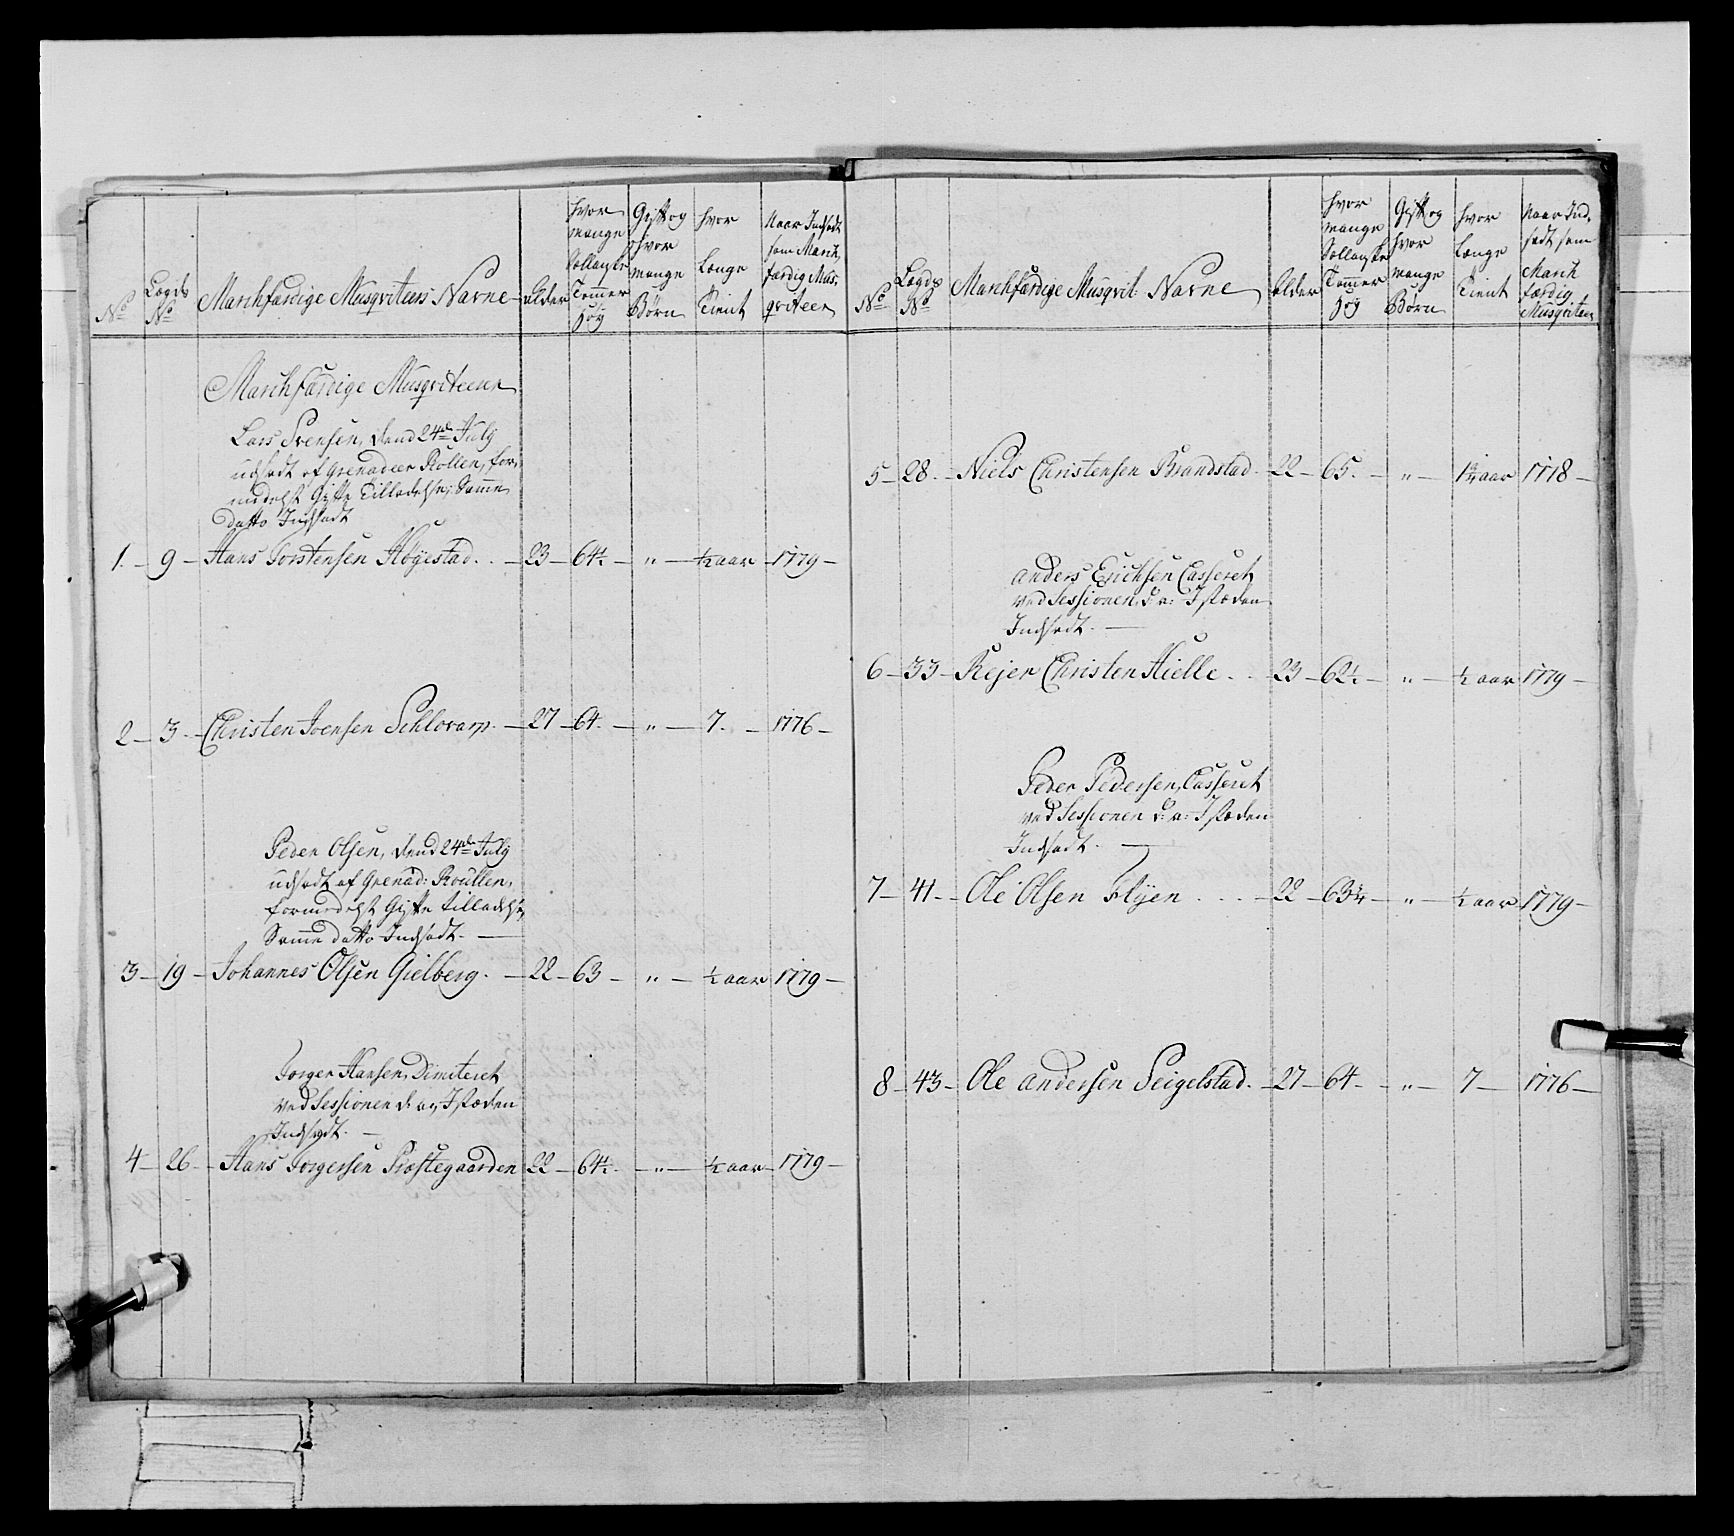 No
Lægds No
Marchfærdige Musqviteers Navne
Alder
hvor mange Sollanske Tommer høy
Gift og hvor mange Børn
hvor Længe Tient
Naar Indsadt som Marchfærdig Musqviteer
Marchfærdige Musqviteerer
Lars Svensen, dend 24de July
udsadt af Grenadeer Rollen, for,
medelst Gifte Tilladelse; Samme
datto Indsadt
1. 9 Hans Torstensen Høgestad. 23 64½ " ½ aar 1779
2 3. Christen Joensen Schlovarp. 27 64. " 7. 1776
Peder Olsen, dend 24de July
udsadt af Grenad: Roullen,
formedelst Gifte tilladelse,
Samme datto Indsadt.
3 19 Johannes Olsen Gielberg. 22 63 " ½ aar 1779
Torger Hansen, Dimiteret
ved Sessionen d: a: I stæden
Indsadt.
4 26 Hans Torgersen Præstegaarden 22 64½. " ½ aar 1779
No
Lægds No
Marchfærdige Musqvit. Navne
Alder
hvor mange Sollanske Tommer høy
Gift og hvor mange Børn
hvor Længe Tient
Naar Indsadt som March færdig Musqviteer
5 28. Niels Christensen Brandstad. 22 65. " 1¾ aar 1778
Anders Erichsen Casseret
ved Sessionen, d: a: I stæden
Indsadt.
6 33 Rejer Christen Hielle. 23 62½. " ½ aar 1779
Peder Pedersen, Casseret
ved Sessionen d: a: I stæden
Indsadt.
7 41. Ole Olsen Flyen 22 63¼ " ½ aar 1779
8 43 Ole Andersen Seigelstad. 27 64 " 7 1776